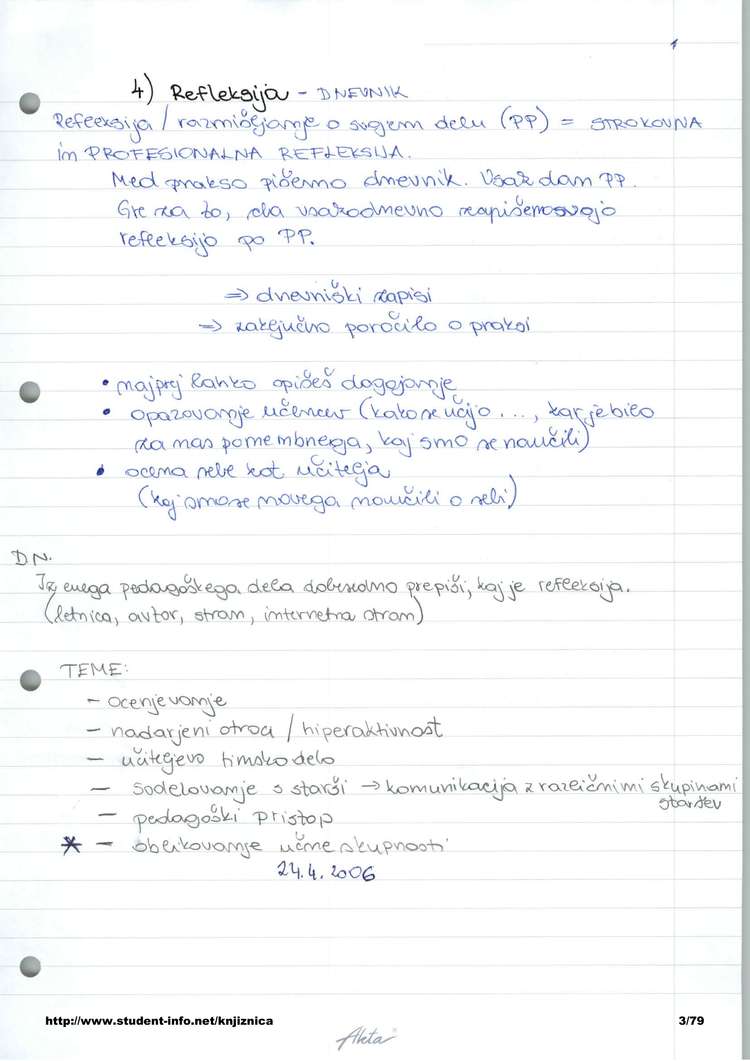 4) Refleksija - DNEVNIK
Refleksija / razmišljanje o svojem delu (PP) = STROKOVNA
in PROFESIONALNA REFLEKSIJA.
Med prakso pišemo dnevnik. Vsak dan PP.
Gre za to, da vsakodnevno zapišemo svojo
refleksijo po PP.
⇒ dnevniški zapisi
⇒ zaključno poročilo o praksi
• najprej lahko opišeš dogajanje
• opazovanje učencev (kako se učijo ..., kar je bilo
za nas pomembnega, kaj smo se naučili)
• ocena sebe kot učitelja
(kaj smo se novega naučili o sebi)
DN.
Iz enega pedagoškega dela dobesedno prepiši, kaj je refleksija.
(letnica, avtor, stran, internetna stran)
TEME:
- ocenjevanje
- nadarjeni otroci / hiperaktivnost
- učiteljevo timsko delo
- sodelovanje s starši → komunikacija z različnimi skupinami
staršev
- pedagoški pristop
* - oblikovanje učne skupnosti
24.4.2006
http://www.student-info.net/knjiznica
3/79
Akta